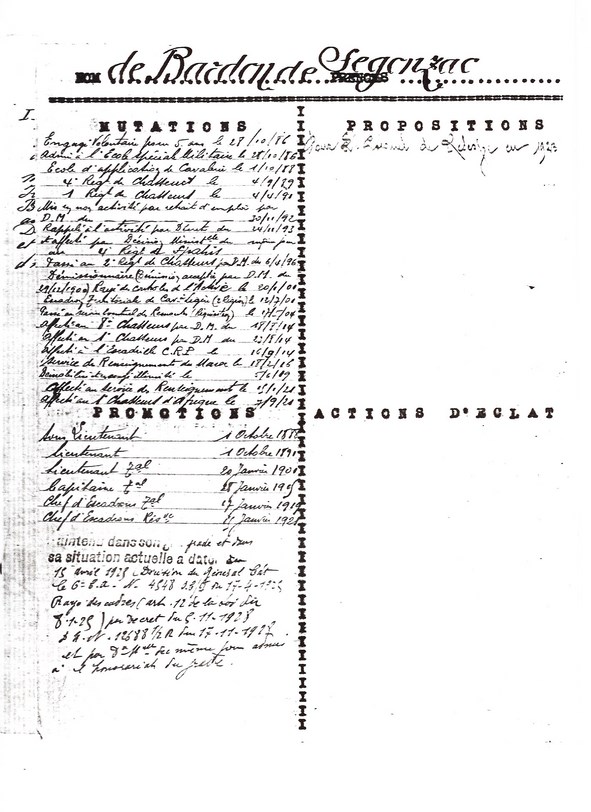 NOM de Bardon de Segonzac PRENOMS
MUTATIONS
Engagé Volontaire pour 5 ans le 28/10/86
Admis à l'Ecole Spécial Militaire le 28/10/86
Ecole d'application de Cavalerie le 1/10/88
4e Regt de Chasseurs le 4/9/89
1 Regt de Chasseurs le 4/4/91
Mis en non activité par retrait d'emploi par
D.M. du 20/11/92
Rappelé à l'activité par Décret du 24/11/93
et affecté par Décision Ministelle du même jour
au 4 Regt de Spahis
Passé au 2e Regt de Chasseurs par D.M. du 6/4/96
Démissionnaire (Démission acceptée par D.M. du
29/12/1900) Rayé des controles de l'Armée le 20/1/01
Escadron Territoriale de Cavie Légère le 12/7/01
Passé au service
Affecté au 8e Chasseurs par D.M. du 18/8/14
Affecté au 1e Chasseurs par D.M. du 23/8/14
Affecté à l'Escadrille C.R.P. le 16/9/14
Service de Renseignements du Maroc le 18/2/16
Démobilisé le 5/6/19
Affecté au Service des Renseignements le
Affecté au 1 Chasseurs d'Afrique le 2/9/21
PROMOTIONS
Sous Lieutenant 1 Octobre 1888
Lieutenant 1 Octobre 1891
Lieutenant Tal 20 Janvier 1901
Capitaine Tal
Chef d'Escadrons Tal
Chef d'Escadrons Résve
maintenu dans son grade et dans
sa situation actuelle a dater du
15 avril 1925 Décision du Général Cdt
le 6e C.A. N° 4548
Rayé des cadres (art. 12 de la loi du
8.1.25) par Decret du 5.11.1928
12688
et par Don Mlle du même jour admis
à l'honorariat du grade.
PROPOSITIONS
Pour
ACTIONS D'ECLAT